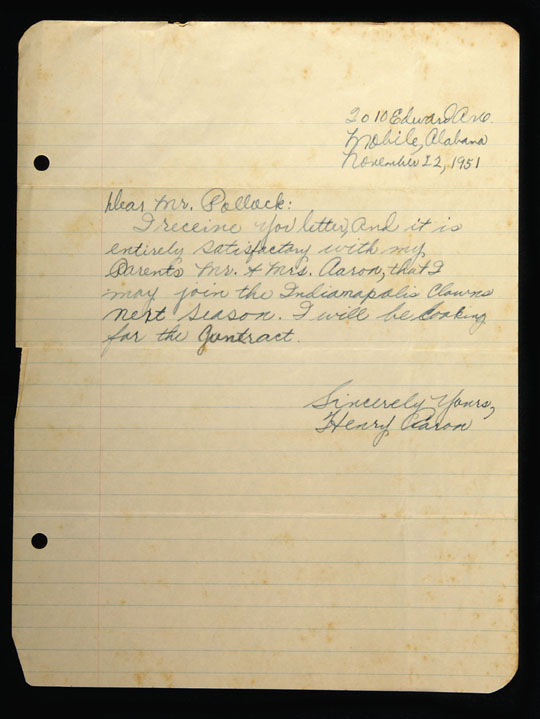 2010 Edward Ave.
Mobile, Alabama
November 22, 1951
Dear Mr. Pollock:
I receive you letter, And it is
entirely satisfactory with my
Parents Mr. & Mrs. Aaron, that I
may join the Indianapolis Clowns
next season. I will be looking
for the Contract.
Sincerely Yours,
Henry Aaron